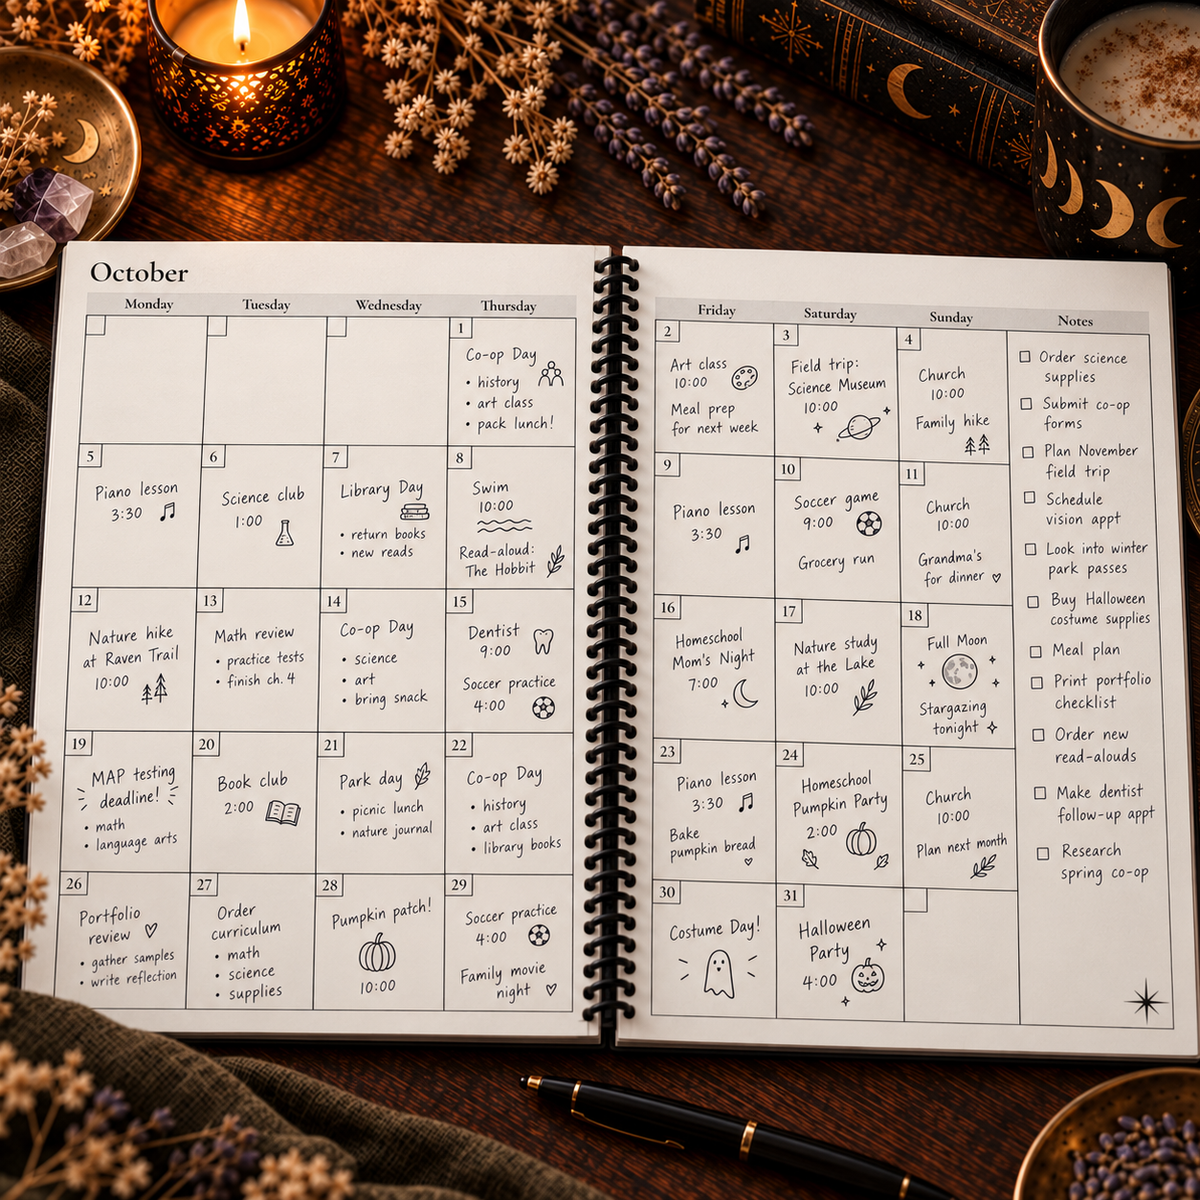 October
Monday
Tuesday
Wednesday
Thursday
1
Co-op Day
• history
• art class
• pack lunch!
5
Piano lesson
3:30
6
Science club
1:00
7
Library Day
• return books
• new reads
8
Swim
10:00
Read-aloud:
The Hobbit
12
Nature hike
at Raven Trail
10:00
13
Math review
• practice tests
• finish ch. 4
14
Co-op Day
• science
• art
• bring snack
15
Dentist
9:00
Soccer practice
4:00
19
MAP testing
deadline!
• math
• language arts
20
Book club
2:00
21
Park day
• picnic lunch
• nature journal
22
Co-op Day
• history
• art class
• library books
26
Portfolio
review
• gather samples
• write reflection
27
Order
curriculum
• math
• science
• supplies
28
Pumpkin patch!
10:00
29
Soccer practice
4:00
Family movie
night
Friday
Saturday
Sunday
Notes
2
Art class
10:00
Meal prep
for next week
3
Field trip:
Science Museum
10:00
4
Church
10:00
Family hike
9
Piano lesson
3:30
10
Soccer game
9:00
Grocery run
11
Church
10:00
Grandma's
for dinner
16
Homeschool
Mom's Night
7:00
17
Nature study
at the Lake
10:00
18
Full Moon
Stargazing
tonight
23
Piano lesson
3:30
Bake
pumpkin bread
24
Homeschool
Pumpkin Party
2:00
25
Church
10:00
Plan next month
30
Costume Day!
31
Halloween
Party
4:00
Order science
supplies
Submit co-op
forms
Plan November
field trip
Schedule
vision appt
Look into winter
park passes
Buy Halloween
costume supplies
Meal plan
Print portfolio
checklist
Order new
read-alouds
Make dentist
follow-up appt
Research
spring co-op